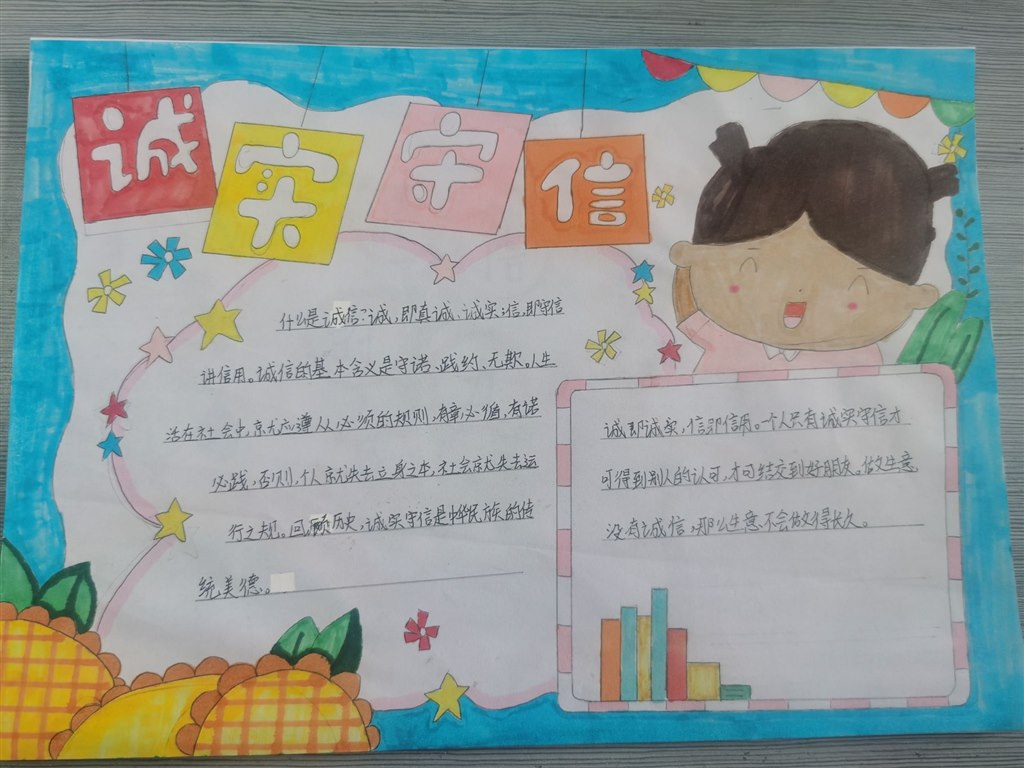 诚实守信
什么是诚信?诚,即真诚、诚实;信,即守信
讲信用。诚信的基本含义是守诺、践约、无欺。人生
活在社会中,就应遵从必须的规则,有章必循,有诺
必践,否则,个人就失去立身之本,社会就失去运
行之规。回顾历史,诚实守信是中华民族的传
统美德。
诚即诚实,信即信用。一个人只有诚实守信才
可得到别人的认可,才可结交到好朋友。做生意
没有诚信,那么生意不会做得长久。